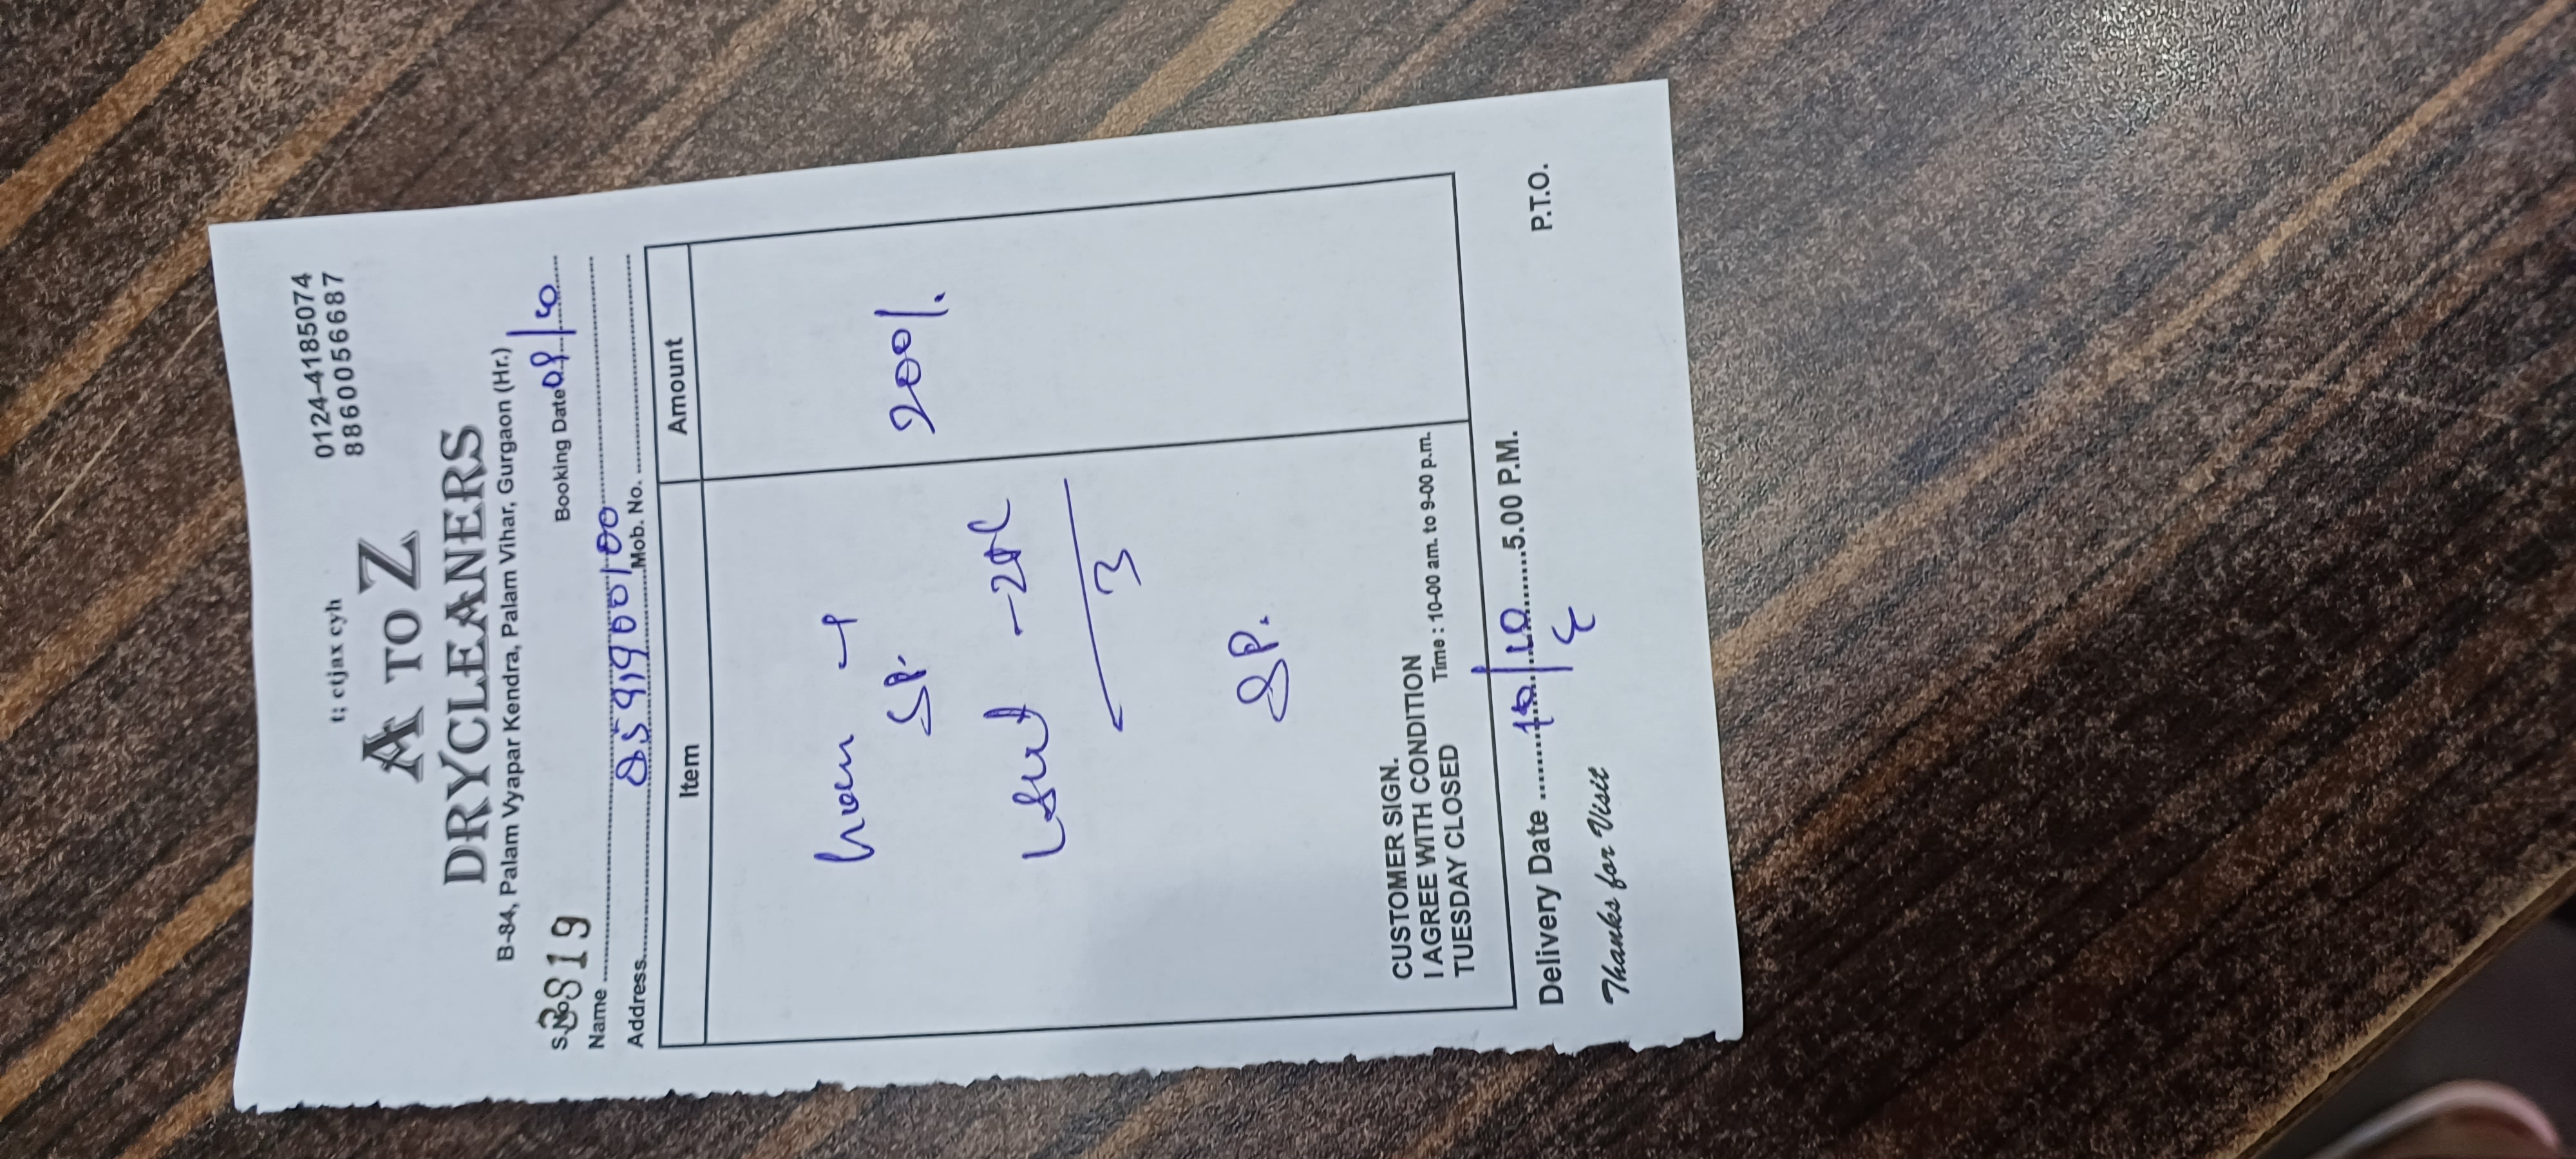 t; ctjax cyh
0124-4185074
8860056687
A TO Z
DRYCLEANERS
B-84, Palam Vyapar Kendra, Palam Vihar, Gurgaon (Hr.)
S.No 3819
Booking Date 09/10
Name
8591900100
Address Mob. No.
Item Amount
SP.
200/.
3
SP.
CUSTOMER SIGN.
I AGREE WITH CONDITION
TUESDAY CLOSED Time : 10-00 am. to 9-00 p.m.
Delivery Date 10/10 5.00 P.M.
P.T.O.
Thanks for Visit